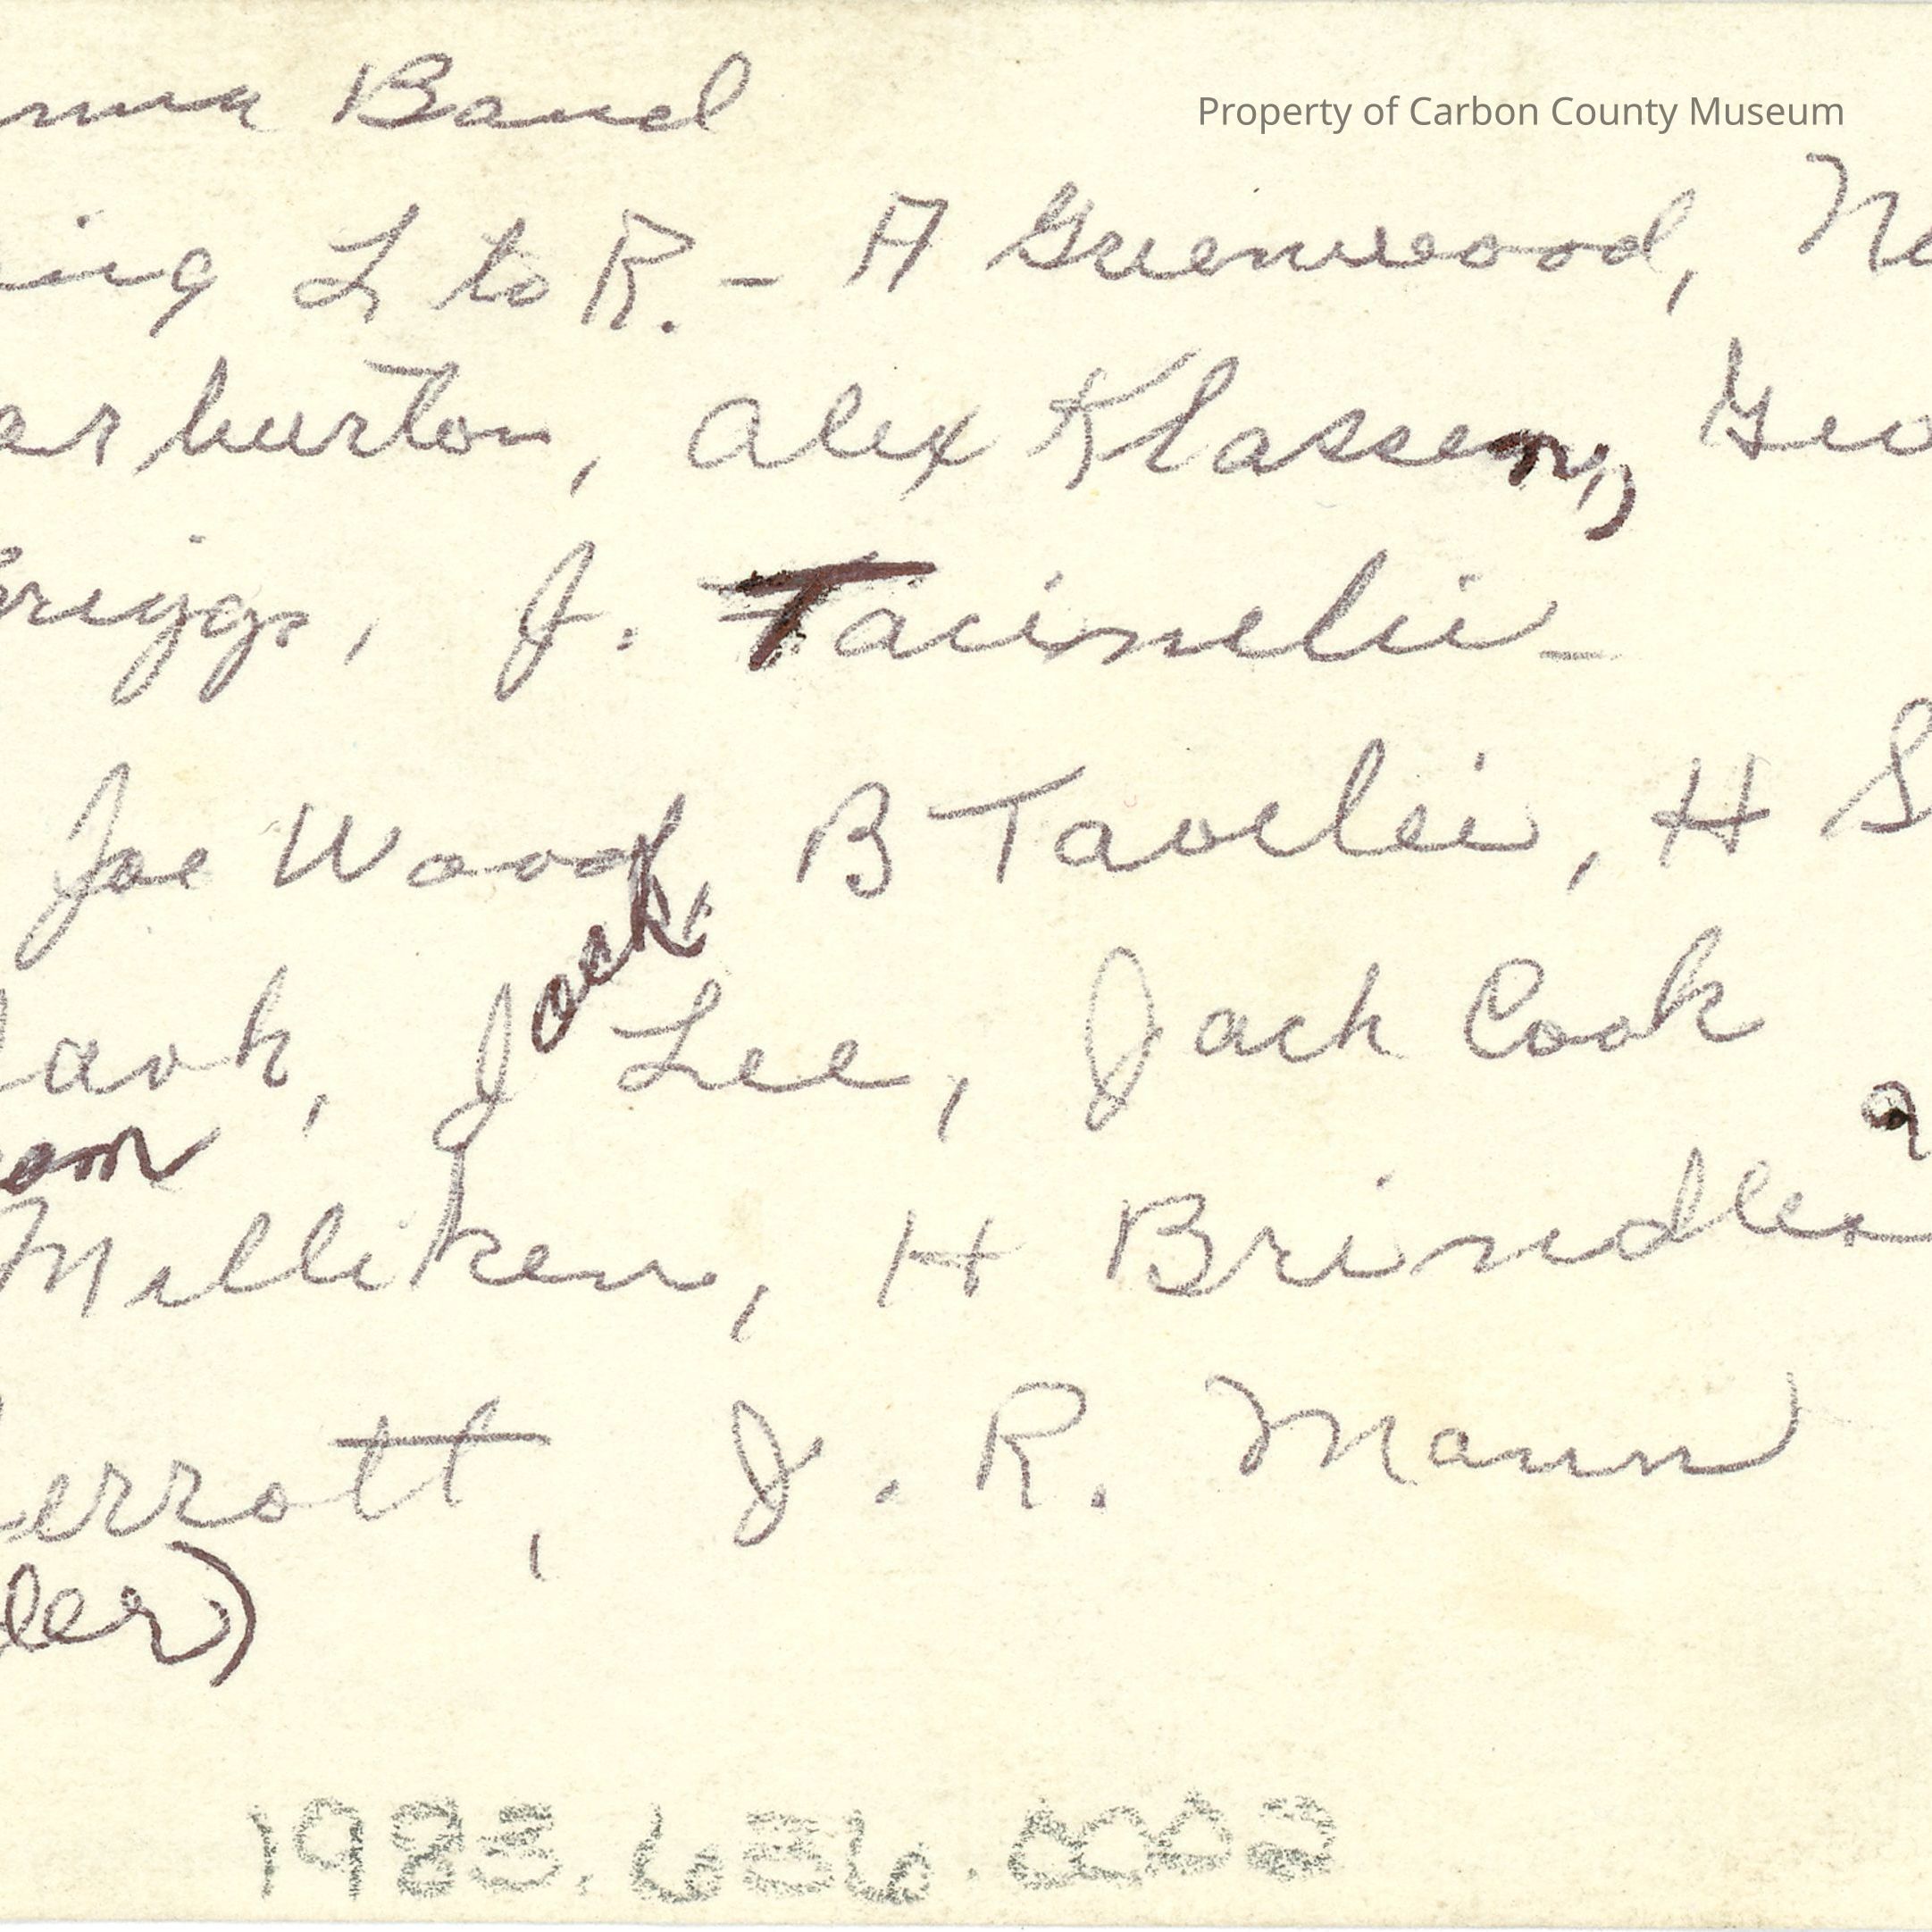 Band
Property of Carbon County Museum
L to R. - A Greenwood,
arburton, Alex Klassen, Geo
Briggs, J.
Joe Wood, B Tavelli, H S
Jock Lee, Jack Cook
Milliken, H Brindle
errott, J. R. Mann
der)
1983.636.0002